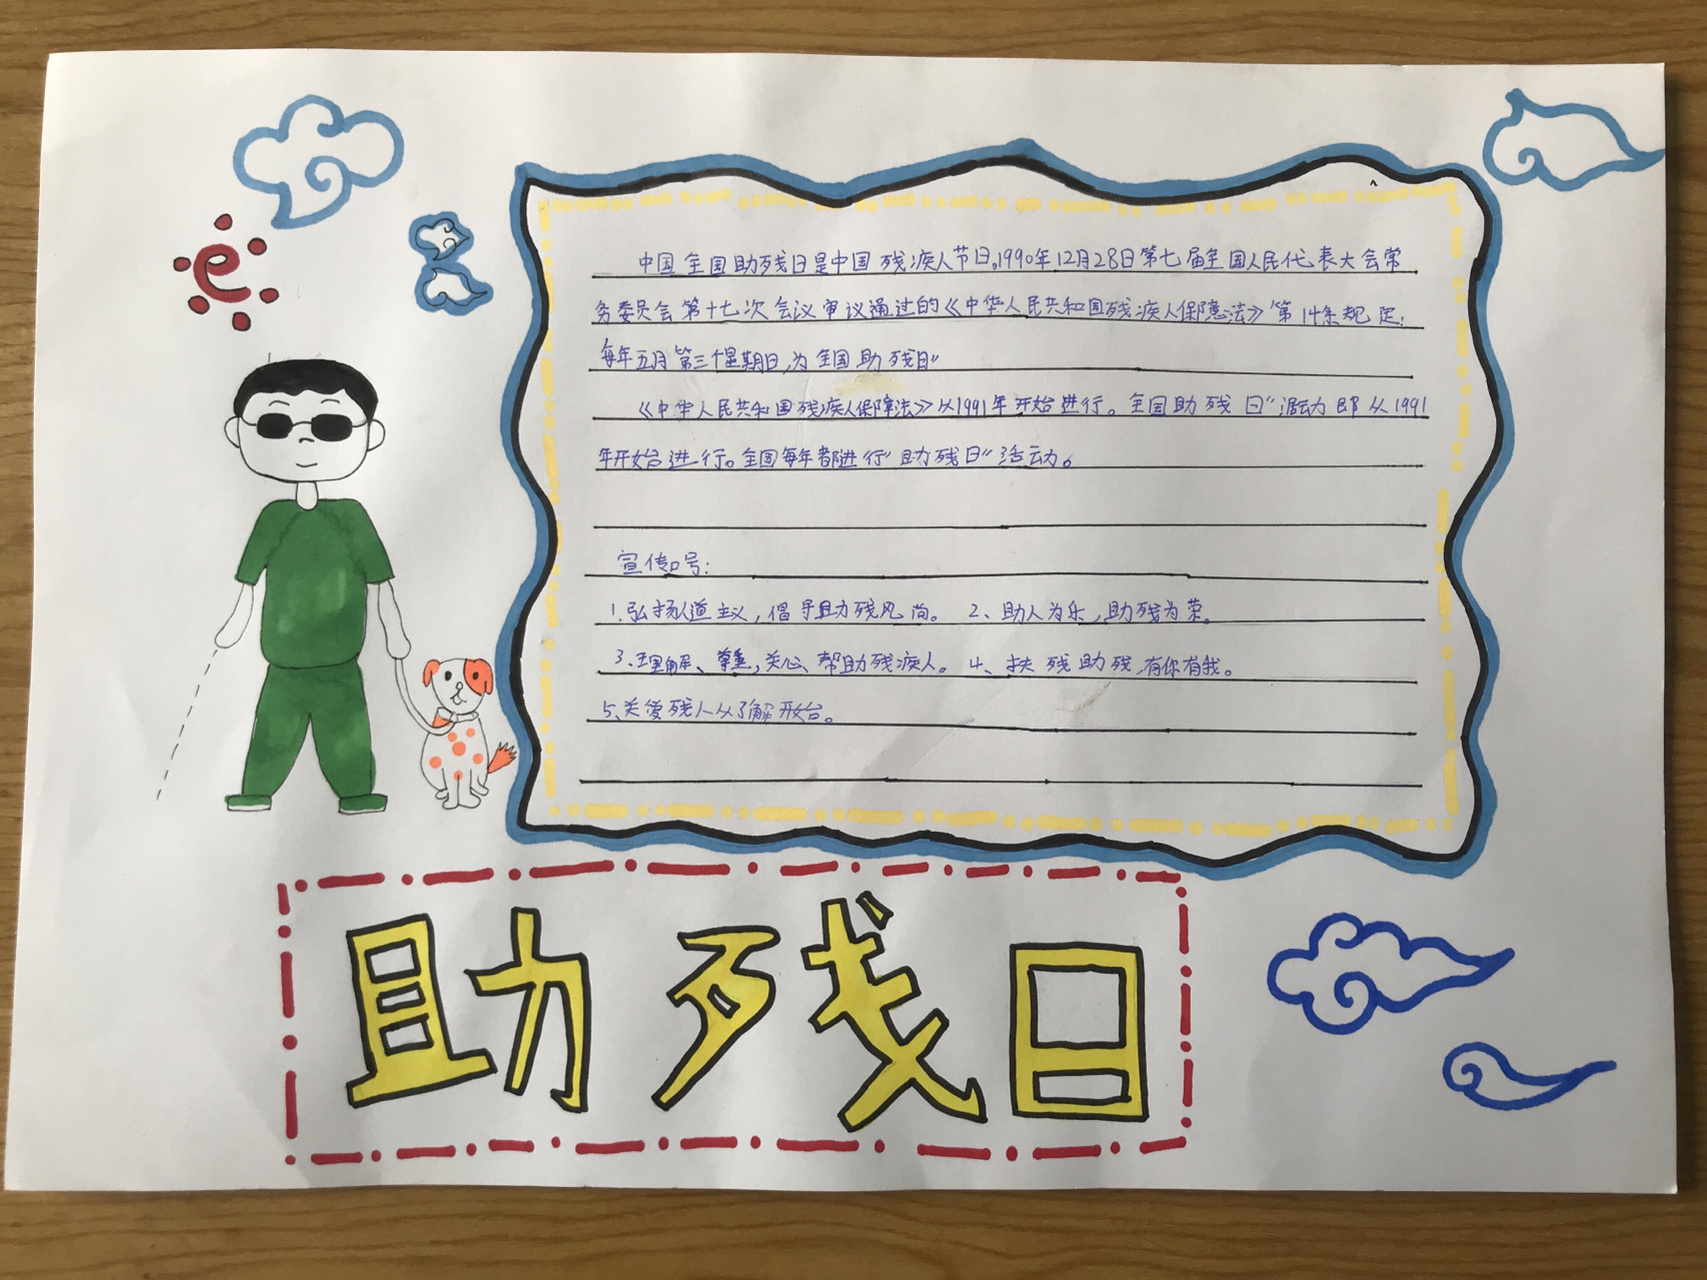 中国全国助残日是中国残疾人节日。1990年12月28日第七届全国人民代表大会常
务委员会第十七次会议审议通过的《中华人民共和国残疾人保障法》第14条规定:
每年五月第三个星期日,为全国助残日"
《中华人民共和国残疾人保障法》从1991年开始进行。全国助残日"活动即从1991
年开始进行。全国每年都进行"助残日"活动。
宣传口号:
1.弘扬人道主义,倡导助残风尚。 2、助人为乐,助残为荣。
3、理解、尊重,关心、帮助残疾人。 4、扶残助残,有你有我。
5、关爱残人从了解开始。
助残日